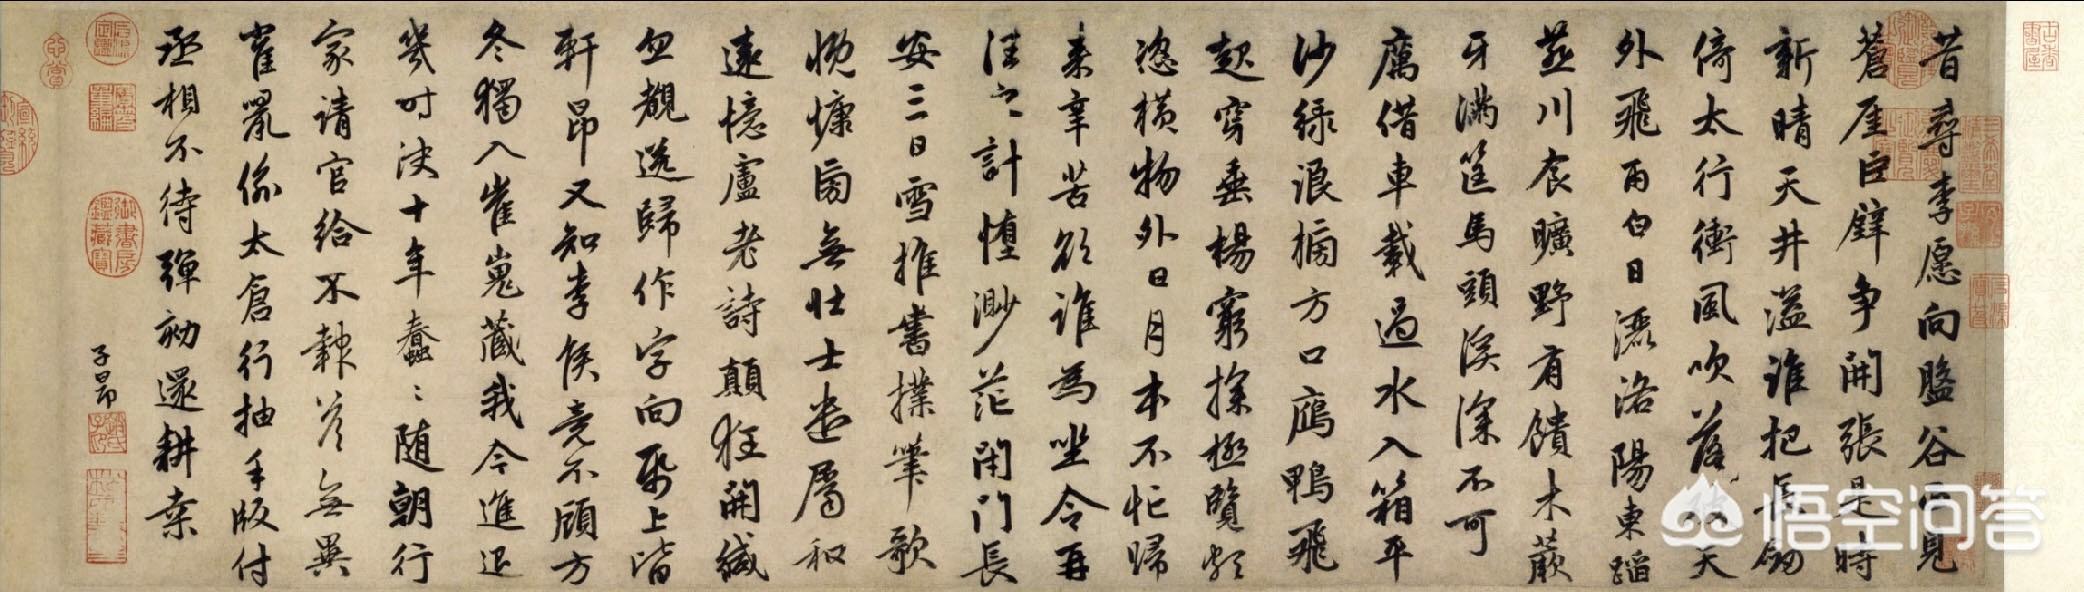 昔尋李愿向盤谷正見
蒼崖巨壁争開張是時
新晴天井溢誰把長劒
倚太行衝風吹落天
外飛雨白日灑洛陽東蹈
燕川食曠野有饋木蕨
牙滿筐馬頭溪深不可
厲借車載過水入箱平
沙緑浪搒方口鴈鴨飛
起穿垂楊窮探極覽頗
恣横物外日月本不忙歸
来辛苦欲誰為坐令再
往之計堕渺茫閉門長
安三日雪推書撲筆歌
慨慷旁無壮士遣屬和
遠憶盧老詩顛狂開緘
忽覩送歸作字向紙上皆
軒昂又知李侯竟不顧方
冬獨入崔嵬藏我今進退
幾時決十年蠢〻随朝行
家請官給不報答無異
雀鼠偷太倉行抽手版付
丞相不待彈劾還耕桒
子昂
悟空问答